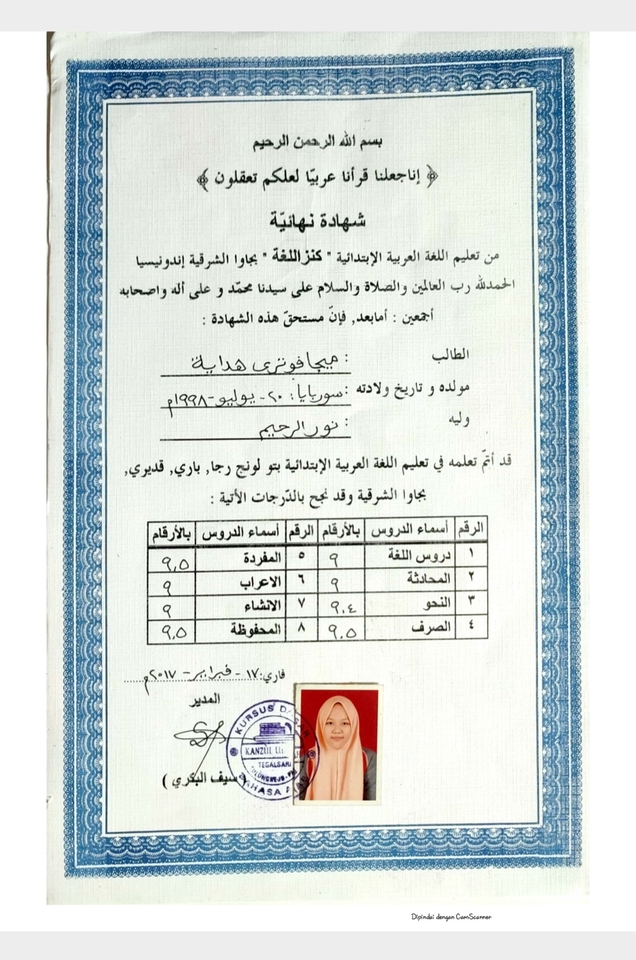 بسم الله الرحمن الرحيم
﴿ إناجعلنا قرأنا عربيّا لعلكم تعقلون ﴾
شهادة نهائيّة
من تعليم اللغة العربية الإبتدائية " كنزاللغة " بجاوا الشرقية إندونيسيا
الحمدلله رب العالمين والصلاة والسلام على سيدنا محمّد و على أله واصحابه
أجمعين : أمابعد, فإنّ مستحقّ هذه الشهادة :
الطالب : ميجا فوتري هداية
مولده و تاريخ ولادته : سوربايا، ٢٠ - يوليو - ١٩٩٨م
وليه : نور الرحيم
قد أتمّ تعلمه في تعليم اللغة العربية الإبتدائية بتو لونج رجا, باري, قديري,
بجاوا الشرقية وقد نجح بالدّرجات الأتية :
الرقم أسماء الدروس بالأرقام الرقم أسماء الدروس بالأرقام
١ دروس اللغة ٩ ٥ المفردة ٩,٥
٢ المحادثة ٩ ٦ الاعراب ٩
٣ النحو ٩,٤ ٧ الانشاء ٩
٤ الصرف ٩,٥ ٨ المحفوظة ٩,٥
فاري: ١٧ - فبراير - ٢٠١٧م
المدير
KURSUS
KANZUL
TEGALSARI
سيف البكري )
Dipindai dengan CamScanner